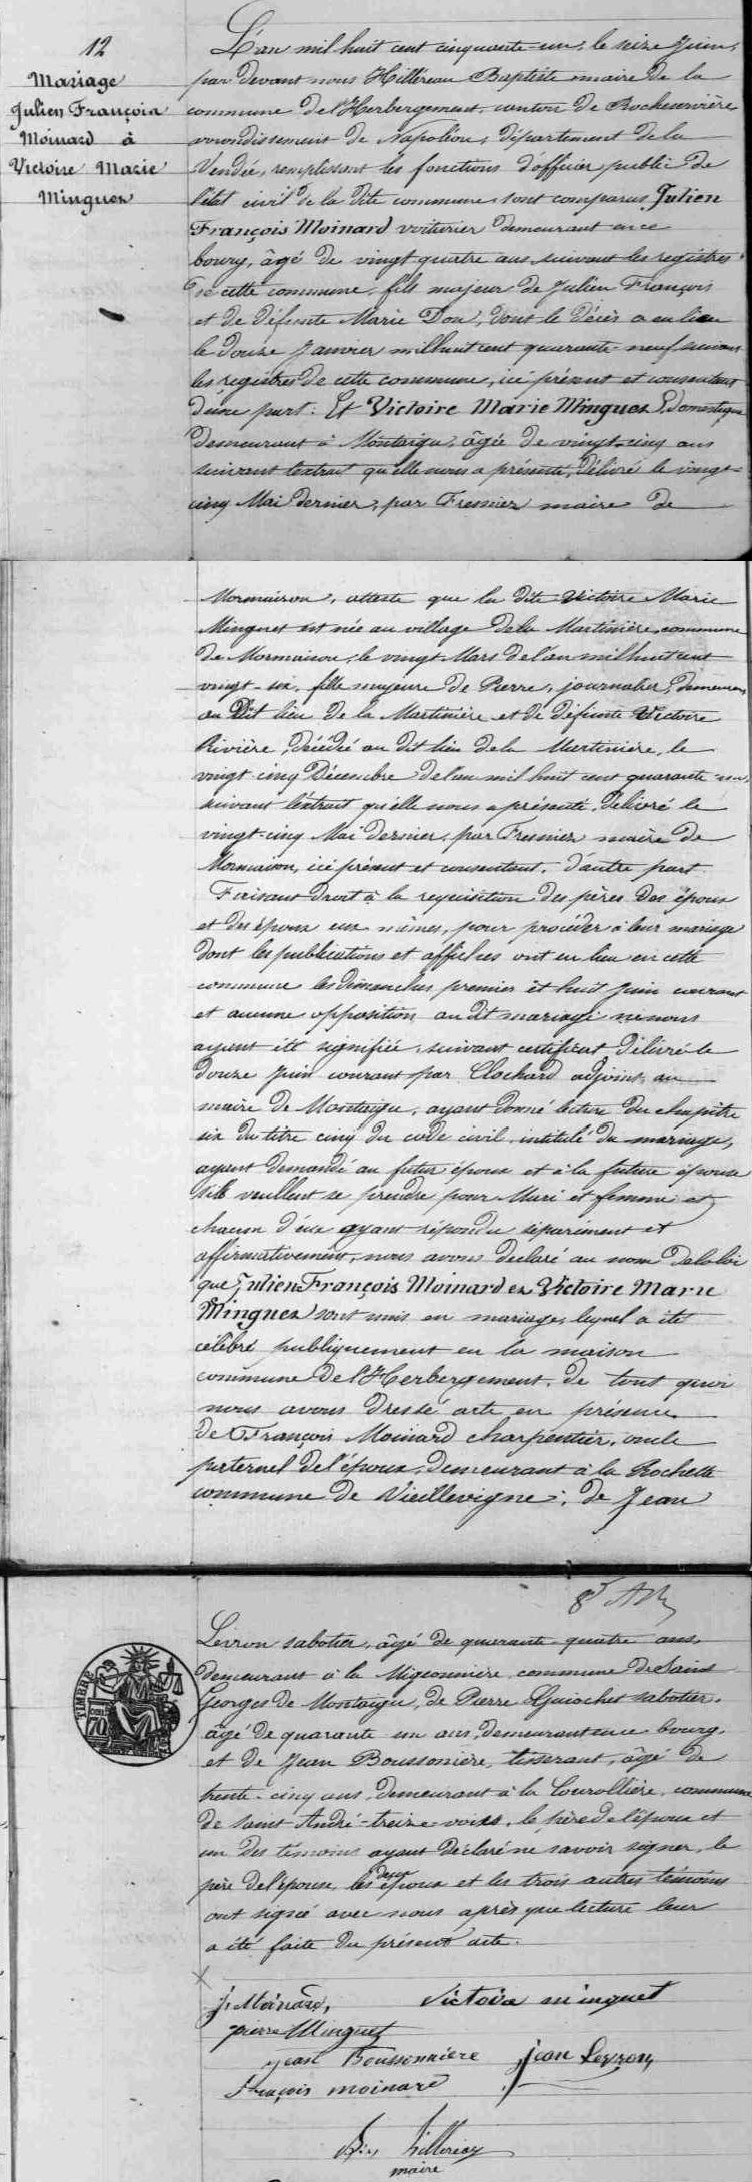 12
Mariage
Julien François
Moinard à
Victoire Marie
Minguez
L'an mil huit cent cinquante-un, le seize Juin,
par devant nous Hillereau Baptiste maire de la
commune de l'Herbergement, canton de Rocheservière
arrondissement de Napoléon, département de la
Vendée, remplissant les fonctions d'officier public de
l'état civil de la dite commune sont comparus Julien
François Moinard voiturier demeurant en ce
bourg, âgé de vingt quatre ans suivant les registres
de cette commune, fils majeur de Julien François
et de défunte Marie Dou, dont le décès a eu lieu
le douze Janvier mil huit cent quarante neuf suivant
les registres de cette commune, ici présent et consentant
d'une part. Et Victoire Marie Minguez, domestique
demeurant à Montaigu, âgée de vingt-cinq ans
suivant l'extrait qu'elle nous a présenté, délivré le vingt-
cinq Mai dernier, par Fresnier maire de
Mormaison, atteste que la dite Victoire Marie
Minguet est née au village de la Martinière, commune
de Mormaison, le vingt Mars de l'an mil huit cent
vingt-six, fille majeure de Pierre, journalier, demeurant
au dit lieu de la Martinière et de défunte Victoire
Rivière, décédée au dit lieu de la Martinière, le
vingt cinq Décembre de l'an mil huit cent quarante-un,
suivant l'extrait qu'elle nous a présenté, délivré le
vingt-cinq Mai dernier, par Fresnier maire de
Mormaison, ici présent et consentent, d'autre part.
Faisant droit à la requisition des pères des époux
et des époux eux mêmes, pour procéder à leur mariage
dont les publications et affiches ont eu lieu en cette
commune les dimanches premier et huit Juin courant
et aucune opposition au dit mariage ne nous
ayant été signifiée, suivant certificat délivré le
douze Juin courant par Clochard adjoint au
maire de Montaigu, ayant donné lecture du chapitre
six du titre cinq du code civil, intitulé du mariage,
ayant demandé au futur époux et à la future épouse
s'ils veullent se prendre pour Mari et femme et
chacun d'eux ayant répondu séparément et
affirmativement, nous avons déclaré au nom de la loi
que Julien François Moinard et Victoire Marie
Minguez sont unis en mariage, lequel a été
célébré publiquement en la maison
commune de l'Herbergement, de tout quoi
nous avons dressé acte en présence
de François Moinard charpentier, oncle
paternel de l'époux, demeurant à la Rochette
commune de Vieillevigne; de Jean
Levron sabotier, âgé de quarante-quatre ans,
demeurant à la Migeonnière commune de Saint
Georges de Montaigu, de Pierre Guiochet sabotier,
âgé de quarante un ans, demeurant en ce bourg,
et de Jean Boussonière, tisserant, âgé de
trente-cinq ans, demeurant à la Courollière, commune
de Saint André-treize-voies, le père de l'époux et
un des témoins ayant déclaré ne savoir signer, le
père de l'épouse, les deux époux et les trois autres témoins
ont signé avec nous après que lecture leur
a été faite du présent acte.
TIMBRE
70
J. Moinard, Victoire minguet
pierre Minguet
Jean Boussonnière Jean Levron
François moinard
Hillereau
maire